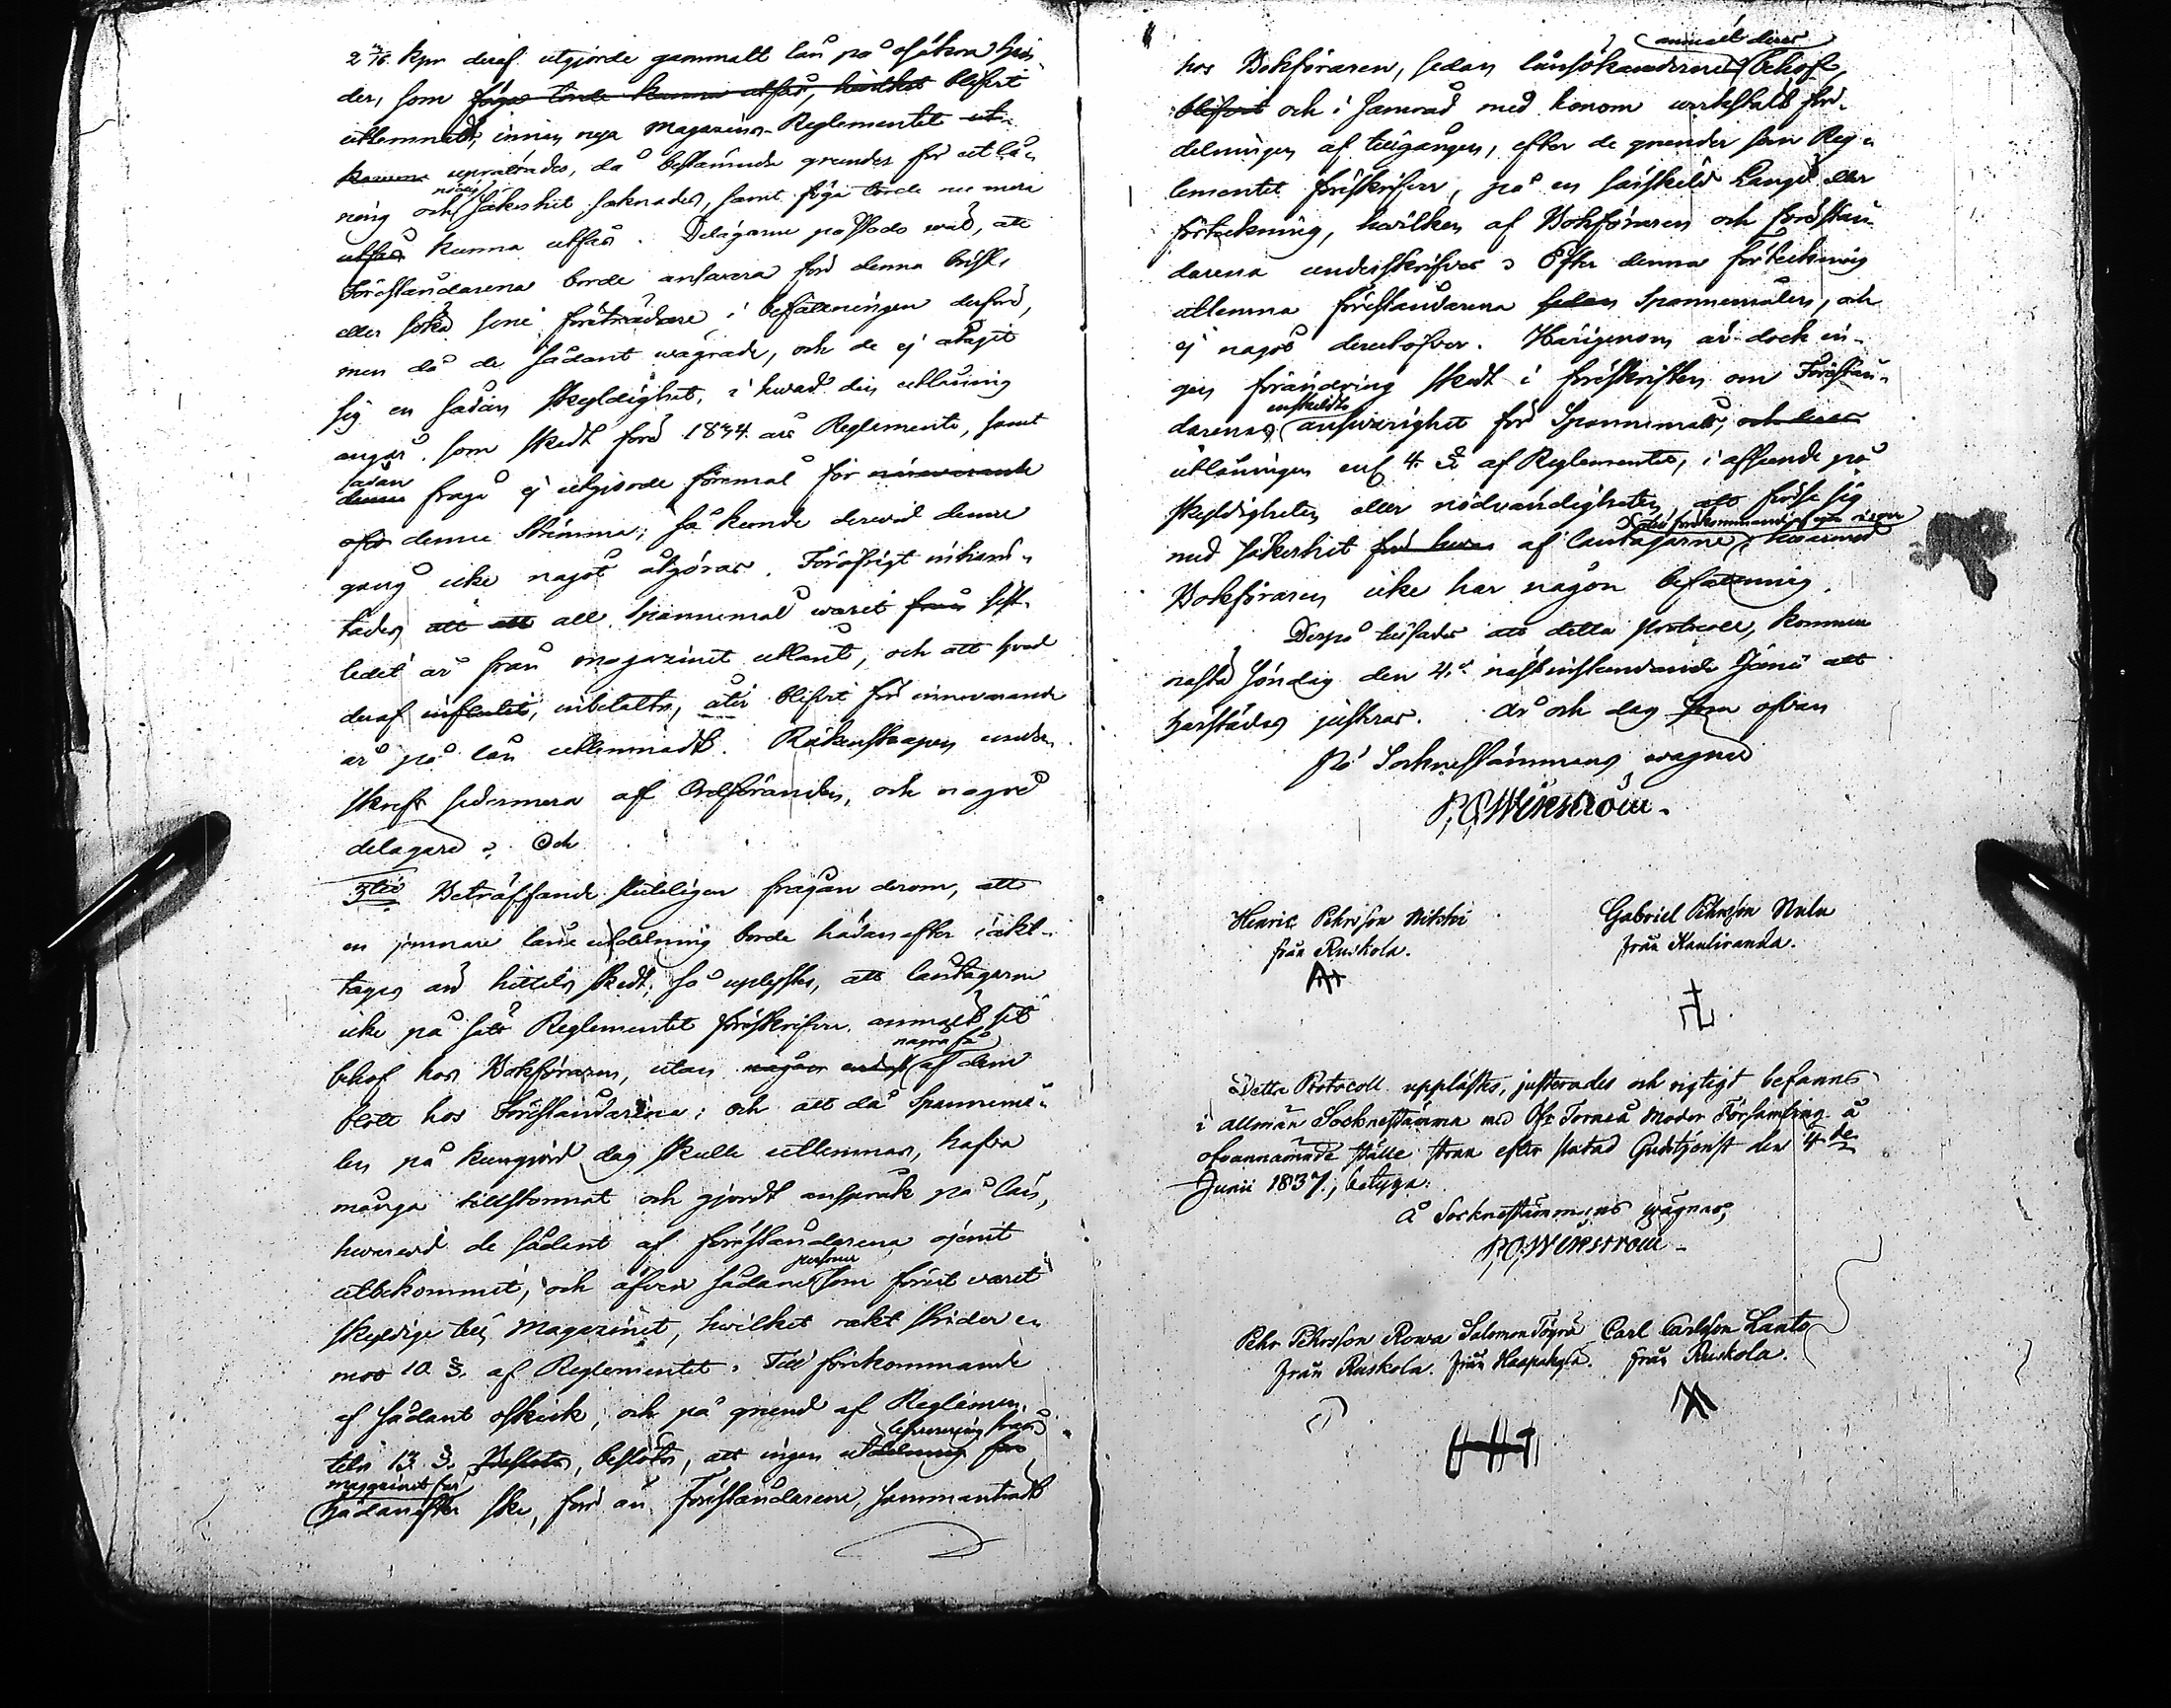 2 7/16. kpr deraf utgjorde gammalt lån på osäkra hän-
der, som föga torde kunna utfås, hvilket blifvit
utlemnadt, innan nya Magazins-Reglementet ut-
kommit upprättades, då bestämda grunder för utlå-
ning och nödig säkerhet saknades, samt föga torde nu mera
utfås kunna utfås. Delägarne påstodo wäl, att
Föreståndarena borde answara för denna brist,
eller söka sine företrädare i befattningen derför,
men då de sådant wägrade, och de ej åtagit
sig en sådan skyldighet, i hwad den utlåning
angår, som skedt före 1834 års Reglemente, samt
sådan
denna fråga ej utgjorde föremål för närwarande
denne Stämma; så kunde derwid denne
gång icke något åtgöras. Föröfrigt inhem-
tades att att all Spannemål warit från sist-
ledet år från magazinet utlånt, och att hwad
deraf influtit, inbetalts, åter blifvit för innevarande
år på lån utlemnadt. Räkenskapen under-
skrefs sedermera af Ordföranden, och några
delägare; Och
3tio Beträffande slutligen frågan derom, att
en jemnare låne utdelning borde hädanefter iakt-
tagas än hittills skedt; så upplystes, att låntagarne
icke på sätt Reglementet föreskrifver anmält sitt
några få
behof hos Bokföraren, utan någon endast af dem
blott hos Föreståndarena; och att då Spannemå-
len på kungjord dag skulle utlemnas, hafva
många tillstommat och gjordt anspråk på lån,
hwarwid de sådant af föreståndarena ojemt
personer
utbekommit, och äfven sådane som förut warit
skyldige till Magazinet, hwilket rakt strider e-
mot 10. §. af Reglementet. Till förekommande
af sådant oskick, och på grund af Reglemen-
leverering från
tets 13. §. beslöts, att ingen utdelning får
magazinet får
hädanefter ske, förr än Föreståndarena, sammanträdt
anmält deras
hos Bokföraren, sedan lånsökanderne behof,
blifvit och i samråd med honom werkstält för-
delningen af tillgången, efter de grunder som Reg-
lementet föreskrifver, på en särskild Längd eller
förteckning, hwilken af Bokföraren och förestån-
darena underskrifves; Efter denna förteckning
utlemna föreståndarena sedan Spannemålen, och
ej något derutöfver. Härigenom är dock in-
gen förändring skedt i föreskriften om Förestån-
enskildta
darenas answarighet för Spannemåls, och deras
utlåningen enl. 4. §. af Reglementet, i afseende på
skyldigheten eller nödvändigheten att förse sig
med säkerhet för hwar af låntagarne, hwarmed
Bokföraren icke har någon befattning.
Derpå tillsades att detta protocoll, kommer
nästa söndag den 4de nästinstundande Junii att
härstädes justeras. År och dag som ofvan
På Sockneståmmans wägnar
P. O. Wikström.
Henric Pehrsson Niktoi
från Ruskola.
Gabriel Pehrsson Nulu
från Kauliranda.
Detta Protocoll uppläsdes, justerades och rigtigt befanns
i allmän Socknestämma med Öfr Torneå Moder Församling å
ofvannämnde ställe strax efter slutad Gudstjenst den 4de
Junii 1837., betyga:
Å Sockneståmmans wägnar,
P. O. Wikström.
Pehr Pehrsson Rowa Salomon Töyrä Carl Carlsson Lanto
från Ruskola. från Haapakylä. från Ruskola.